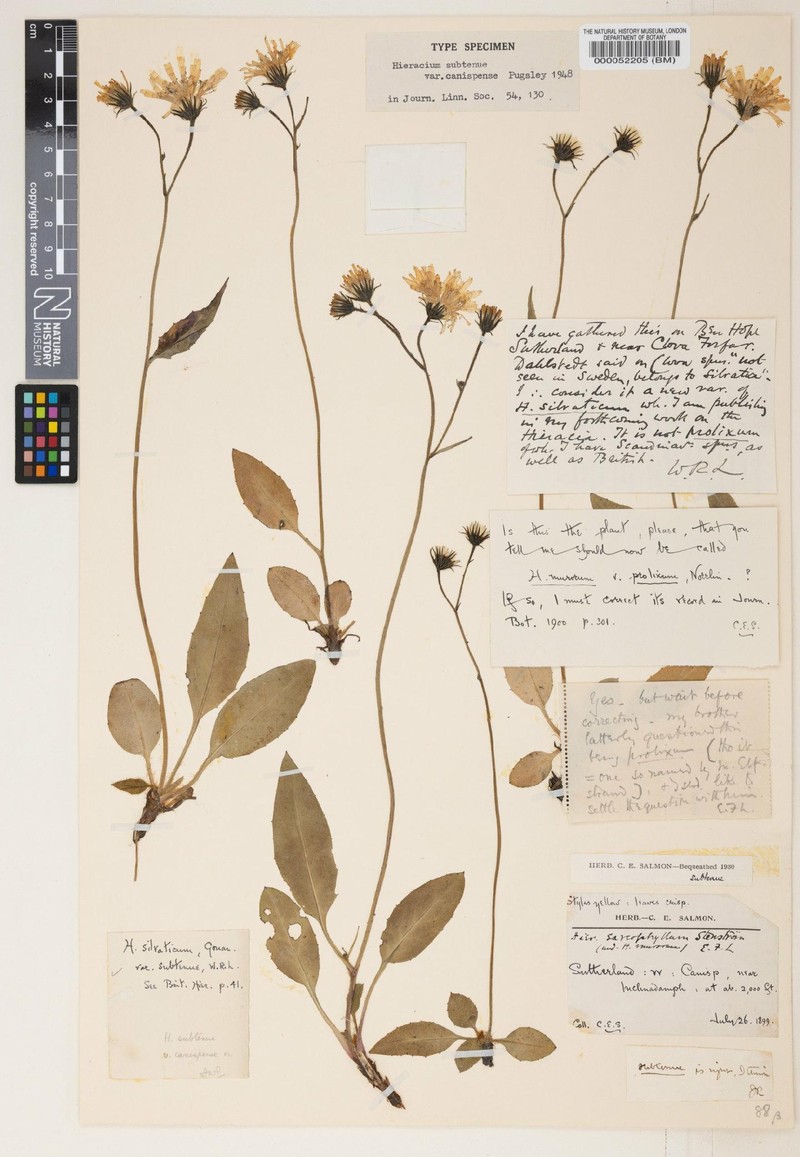 THE NATURAL HISTORY MUSEUM, LONDON
DEPARTMENT OF BOTANY
000052205 (BM)
TYPE SPECIMEN
Hieracium subtenue
var. canispense Pugsley 1948
in Journ. Linn. Soc. 54, 130.
cm
0 1 2 3 4 5 6 7 8 9 10
copyright reserved
NATURAL
HISTORY
MUSEUM
I have gathered this on Ben Hope
Sutherland & near Clova Forfar.
Dahlstedt said on Clova spns. "not
seen in Sweden, belongs to silvatica".
I ∴ consider it a new var. of
H. silvaticum wh. I am publishing
in my forthcoming work on the
Hieracia. It is not prolixum
of wh. I have Scandinav: spns, as
well as British.
W.R.L.
Is this the plant, please, that you
tell me should now be called
H. murorum v. prolixum, Norrlin. ?
If so, I must correct its record in Journ.
Bot. 1900 p. 301.
C.E.S.
Yes - but wait before
correcting - my brother
latterly questioned this
being prolixum (tho' it is
= one so named by M. Elf-
strand), & I shd. like to
settle the question with him.
E.F.L.
HERB. C. E. SALMON—Beqseathed 1930
subtenue
Styles yellow: leaves crisp.
HERB.—C. E. SALMON.
Hier. sarcophyllum Stenström
(and H. murorum) E.F.L
Sutherland: W: Canisp, near
Inchnadamph: at ab. 2,000 ft.
Coll. C.E.S. July 26. 1899.
subtenue is right,
88 β
H. silvaticum, Gouan.
var. subtenue, W.R.L.
See Brit. Hier. p. 41.
H. subtenue
v. canispense